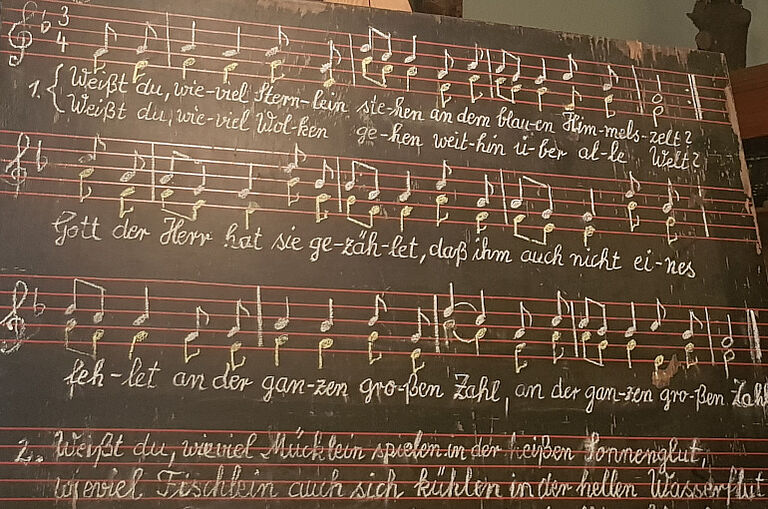 3
4
1. { Weißt du, wie-viel Stern-lein ste-hen an dem blau-en Him-mels-zelt?
Weißt du, wie-viel Wol-ken ge-hen weit-hin ü-ber al-le Welt?
Gott der Herr hat sie ge-zäh-let, daß ihm auch nicht ei-nes
feh-let an der gan-zen gro-ßen Zahl, an der gan-zen gro-ßen Zahl
2. Weißt du, wieviel Mücklein spielen in der heißen Sonnenglut,
wieviel Fischlein auch sich kühlen in der hellen Wasserflut